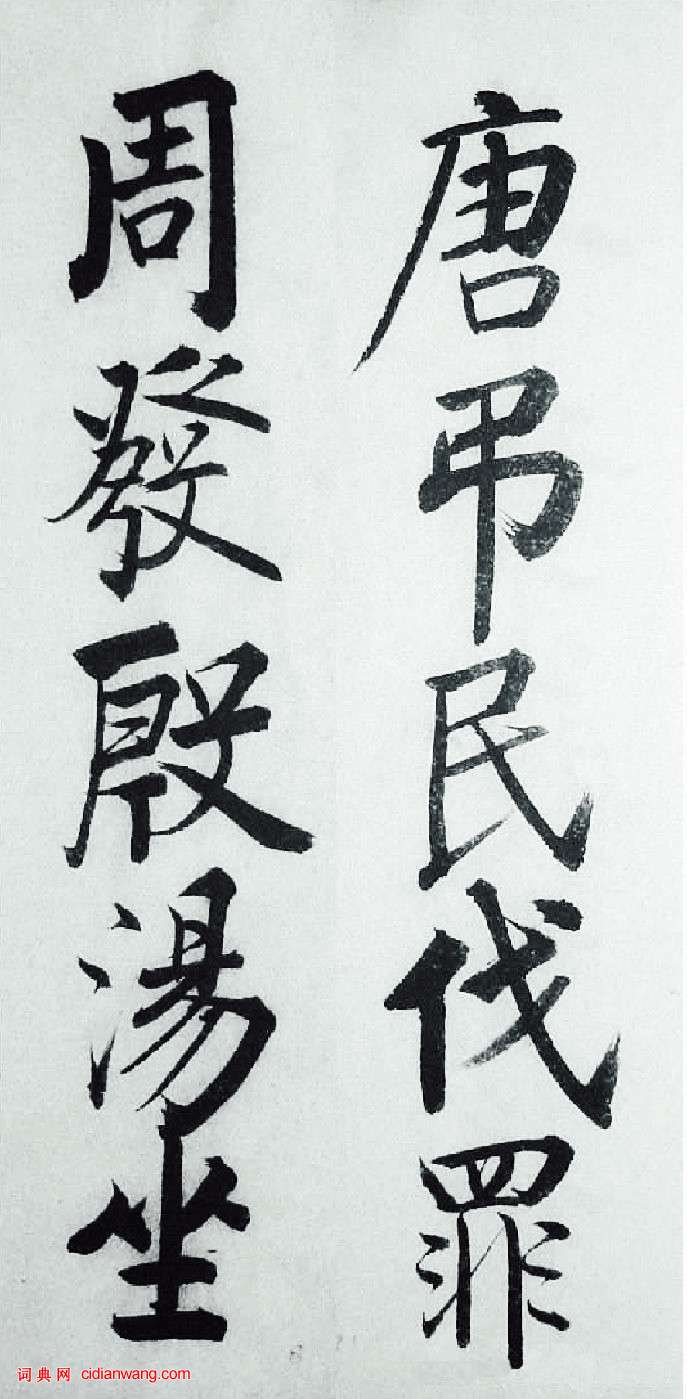 唐弔民伐罪
周發殷湯坐
词典网 cidianwang.com